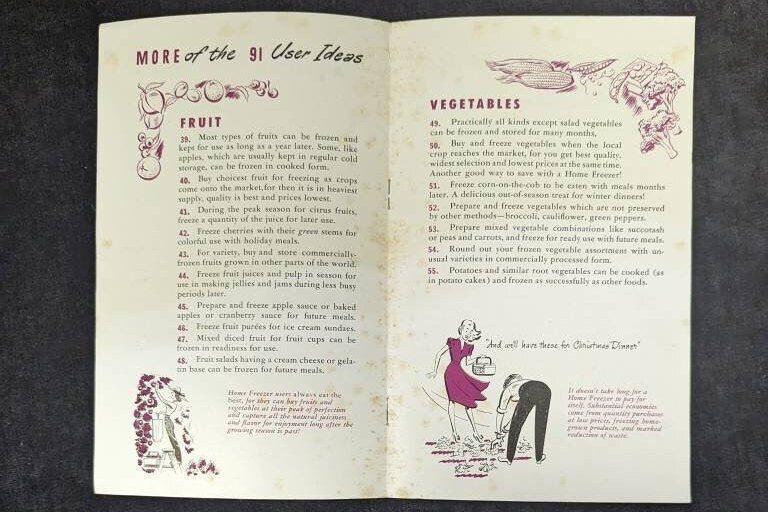 MORE of the 91 User Ideas
FRUIT
39. Most types of fruits can be frozen and
kept for use as long as a year later. Some, like
apples, which are usually kept in regular cold
storage, can be frozen in cooked form.
40. Buy choicest fruit for freezing as crops
come onto the market, for then it is in heaviest
supply, quality is best and prices lowest.
41. During the peak season for citrus fruits,
freeze a quantity of the juice for later use.
42. Freeze cherries with their green stems for
colorful use with holiday meals.
43. For variety, buy and store commercially-
frozen fruits grown in other parts of the world.
44. Freeze fruit juices and pulp in season for
use in making jellies and jams during less busy
periods later.
45. Prepare and freeze apple sauce or baked
apples or cranberry sauce for future meals.
46. Freeze fruit purées for ice cream sundaes.
47. Mixed diced fruit for fruit cups can be
frozen in readiness for use.
48. Fruit salads having a cream cheese or gela-
tin base can be frozen for future meals.
Home Freezer users always eat the
best, for they can buy fruits and
vegetables at their peak of perfection
and capture all the natural juiciness
and flavor for enjoyment long after the
growing season is past!
VEGETABLES
49. Practically all kinds except salad vegetables
can be frozen and stored for many months,
50. Buy and freeze vegetables when the local
crop reaches the market, for you get best quality,
widest selection and lowest prices at the same time.
Another good way to save with a Home Freezer!
51. Freeze corn-on-the-cob to be eaten with meals months
later. A delicious out-of-season treat for winter dinners!
52. Prepare and freeze vegetables which are not preserved
by other methods—broccoli, cauliflower, green peppers.
53. Prepare mixed vegetable combinations like succotash
or peas and carrots, and freeze for ready use with future meals.
54. Round out your frozen vegetable assortment with un-
usual varieties in commercially processed form.
55. Potatoes and similar root vegetables can be cooked (as
in potato cakes) and frozen as successfully as other foods.
"And we'll have these for Christmas Dinner"
It doesn't take long for a
Home Freezer to pay for
itself. Substantial economies
come from quantity purchases
at low prices, freezing home-
grown products, and marked
reduction of waste.